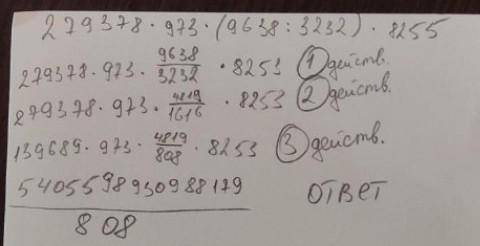 279378 · 973 · (9638 : 3232) · 8255
279378 · 973 · 9638/3232 · 8253 ① действ.
279378 · 973 · 4819/1616 · 8253 ② действ.
139689 · 973 · 4819/808 · 8253 ③ действ.
5405598930988179/808 ОТВЕТ